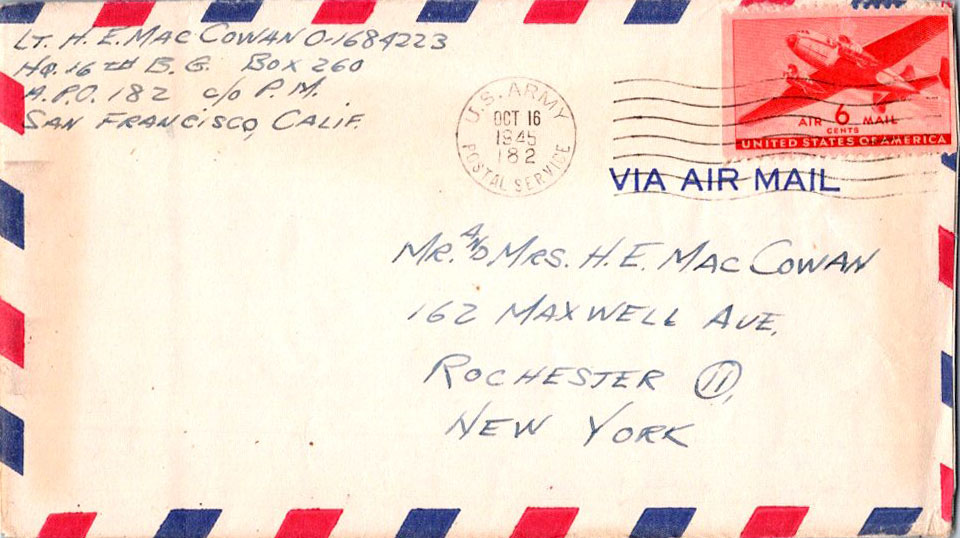 LT. H. E. MAC COWAN O-1684223
HQ. 16TH B. G. BOX 260
A.P.O. 182 c/o P. M.
SAN FRANCISCO, CALIF.
U.S. ARMY
OCT 16
1945
182
POSTAL SERVICE
AIR 6 MAIL
CENTS
UNITED STATES OF AMERICA
VIA AIR MAIL
MR. AND MRS. H. E. MAC COWAN
162 MAXWELL AVE,
ROCHESTER 11,
NEW YORK